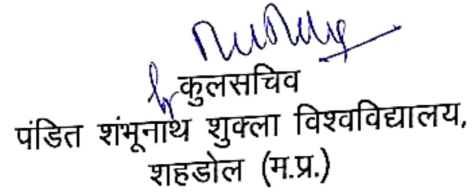 कुलसचिव
पंडित शंभूनाथ शुक्ला विश्वविद्यालय,
शहडोल (म.प्र.)